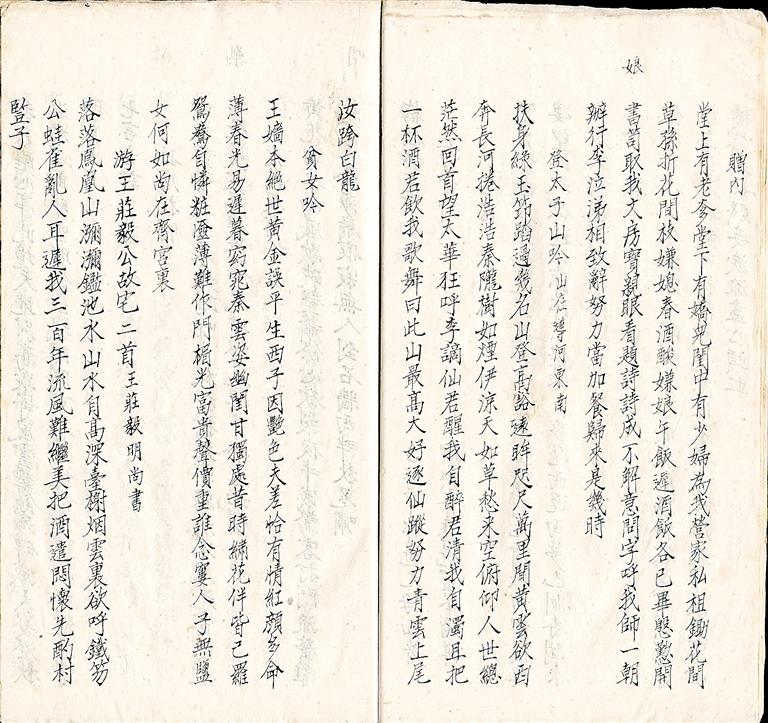 娘
贈內
堂上有老爹堂下有嬌兒閨中有少婦為我營家私祖鋤花間
草孫折花間枝嫌媳春酒酸嫌娘午飯遲酒飯各已畢慇懃開
書笥取我文房寶親眼看題詩詩成不解意問字呼我師一朝
辦行李泣涕相致辭努力當加餐歸來是幾時
登太子山吟 山在導河東南
扶身綠玉筇踏遍幾名山登高豁遠眸咫尺萬里間黃雲欲西
奔長河捲浩浩秦隴樹如煙伊涼天如草愁来空俯仰人世總
茫然回首望太華狂呼李謫仙君醒我自醉君清我自濁且把
一杯酒君飲我歌舞曰此山最高大好逐仙蹤努力青雲上尾
汝跨白龍
貧女吟
王嬙本絕世黃金誤平生西子因艷色夫差恰有情紅顏多命
薄春光易遲暮窈窕秦雲姿幽閨甘獨處昔時繡花伴皆已羅
鴛鴦自憐粧澹薄難作門楣光富貴聲價重誰念寠人子無鹽
女何如尚在齊宮裏
游王莊毅公故宅二首 王莊毅明尚書
落落鳳凰山瀰瀰鑑池水山水自高深臺榭烟雲裏欲呼鐵笏
公蛙雀亂人耳遲我三百年流風難繼美把酒遣悶懷先酌村
豎子